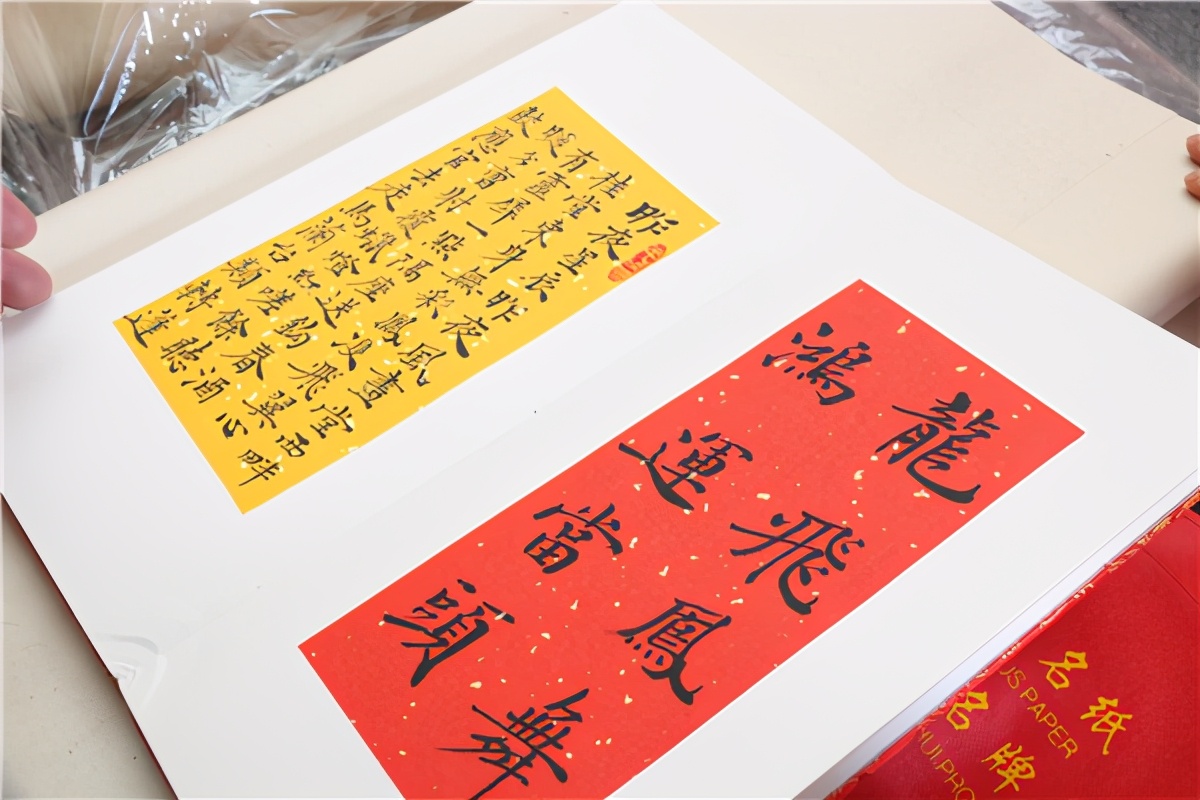 昨夜星辰昨夜風畫堂西畔
桂堂東身無彩鳳双飛翼心
有靈犀一點隔座送鈎春酒
暖分曹射覆蠟燈紅嗟餘聽
鼓應官去走馬蘭台類轉蓬
龍飛鳳舞
鴻運當頭
名纸
US PAPER
名牌